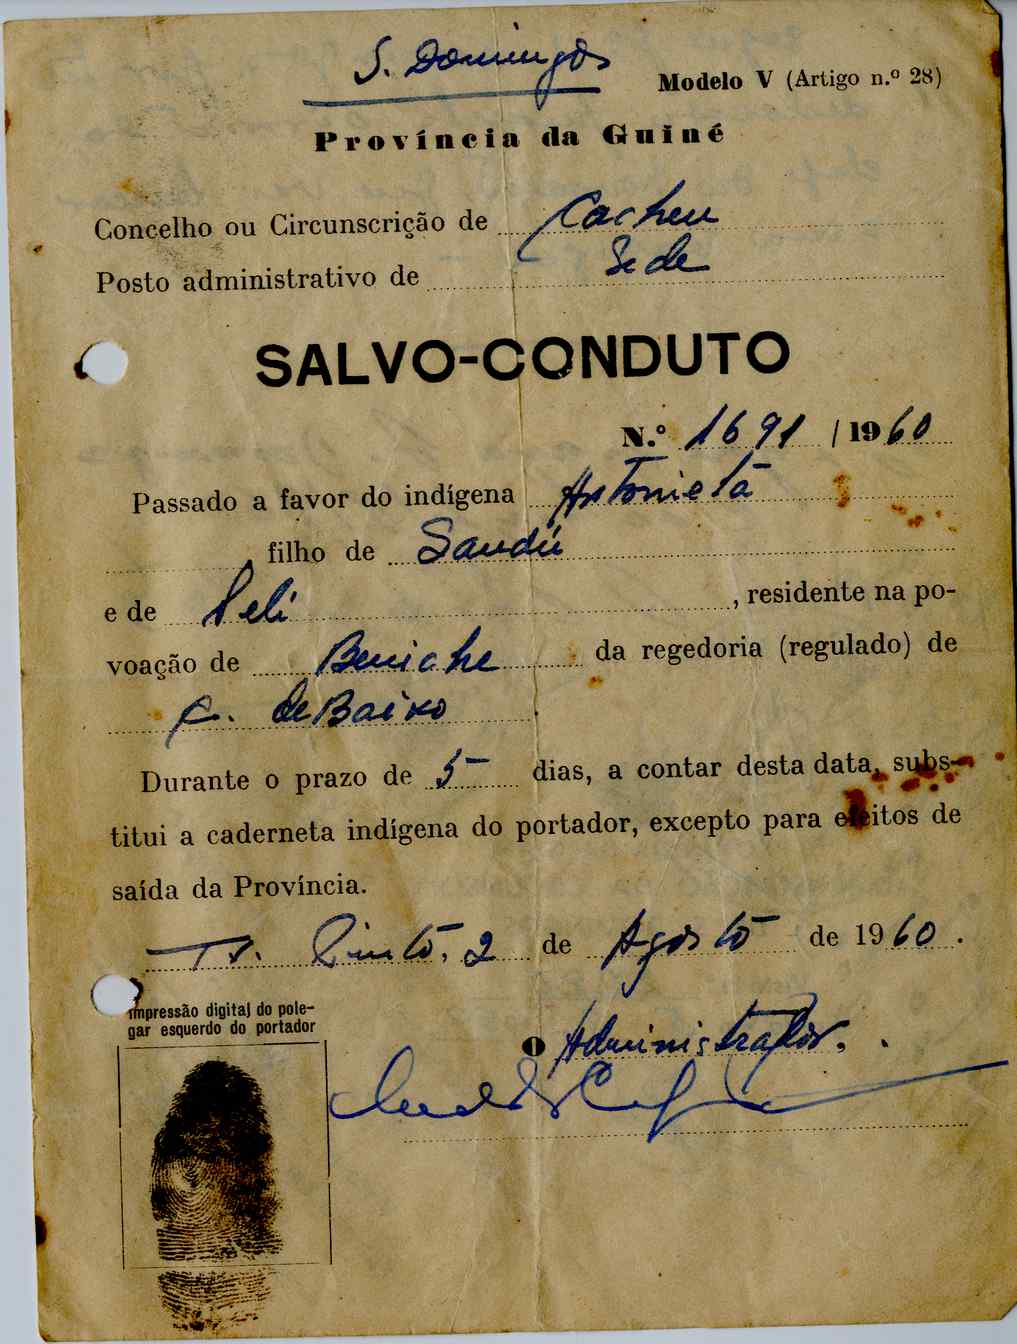 S. Domingos
Modelo V (Artigo n.º 28)
Província da Guiné
Concelho ou Circunscrição de Cacheu
Posto administrativo de Sede
SALVO-CONDUTO
N.º 1691 / 1960
Passado a favor do indígena Antonieta
filho de Sandú
e de Neli, residente na po-
voação de Beniche da regedoria (regulado) de
C. de Baixo
Durante o prazo de 5 dias, a contar desta data, subs-
titui a caderneta indígena do portador, excepto para efeitos de
saída da Província.
T. Pinto, 2 de Agosto de 1960.
Impressão digital do pole-
gar esquerdo do portador
O Administrador,